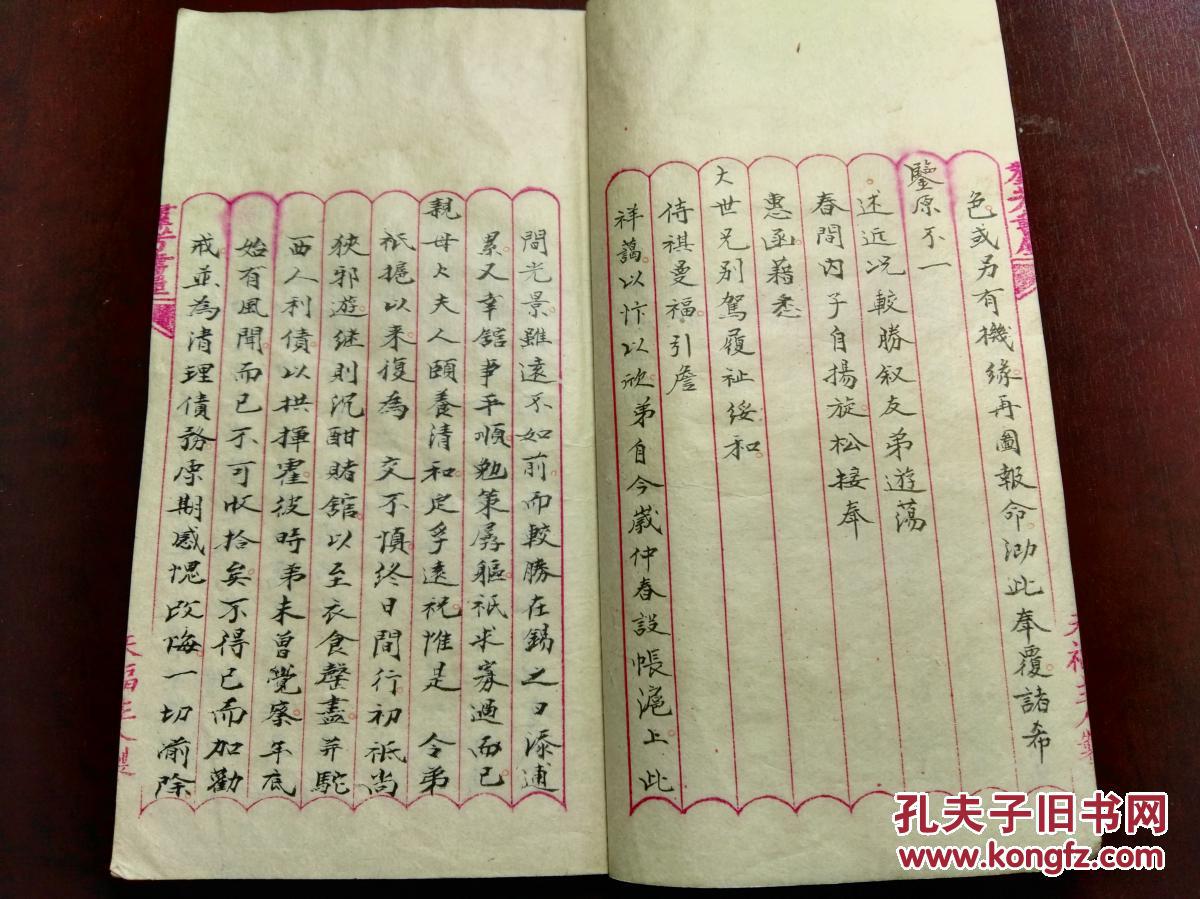 色或另有機緣再圖報命泐此奉覆諸希
鑒原不一
述近况較勝叙友弟遊蕩
春間内子自揚旋松接奉
惠函藉悉
大世兄别駕履祉綏和
侍祺曼福引詹
祥藹以忭以欣弟自今歲仲春設帳滬上此
間光景雖遠不如前而較勝在錫之日漆逋
累又幸舘事平順勉策孱軀祇求寡過而已
親母大夫人頤養清和定孚遠祝惟是 令弟
祇摭以来復為 交不慎終日間行初祇尚
狹邪遊继則沉酣賭舘以至衣食罄盡并駝
西人利債以拱揮霍彼時弟未曾覺察年底
始有風聞而已不可收拾矣不得已而加勸
戒並為清理債務原期感愧改悔一切前除
天福主人製
天福主人製
孔夫子旧书网
www.kongfz.com